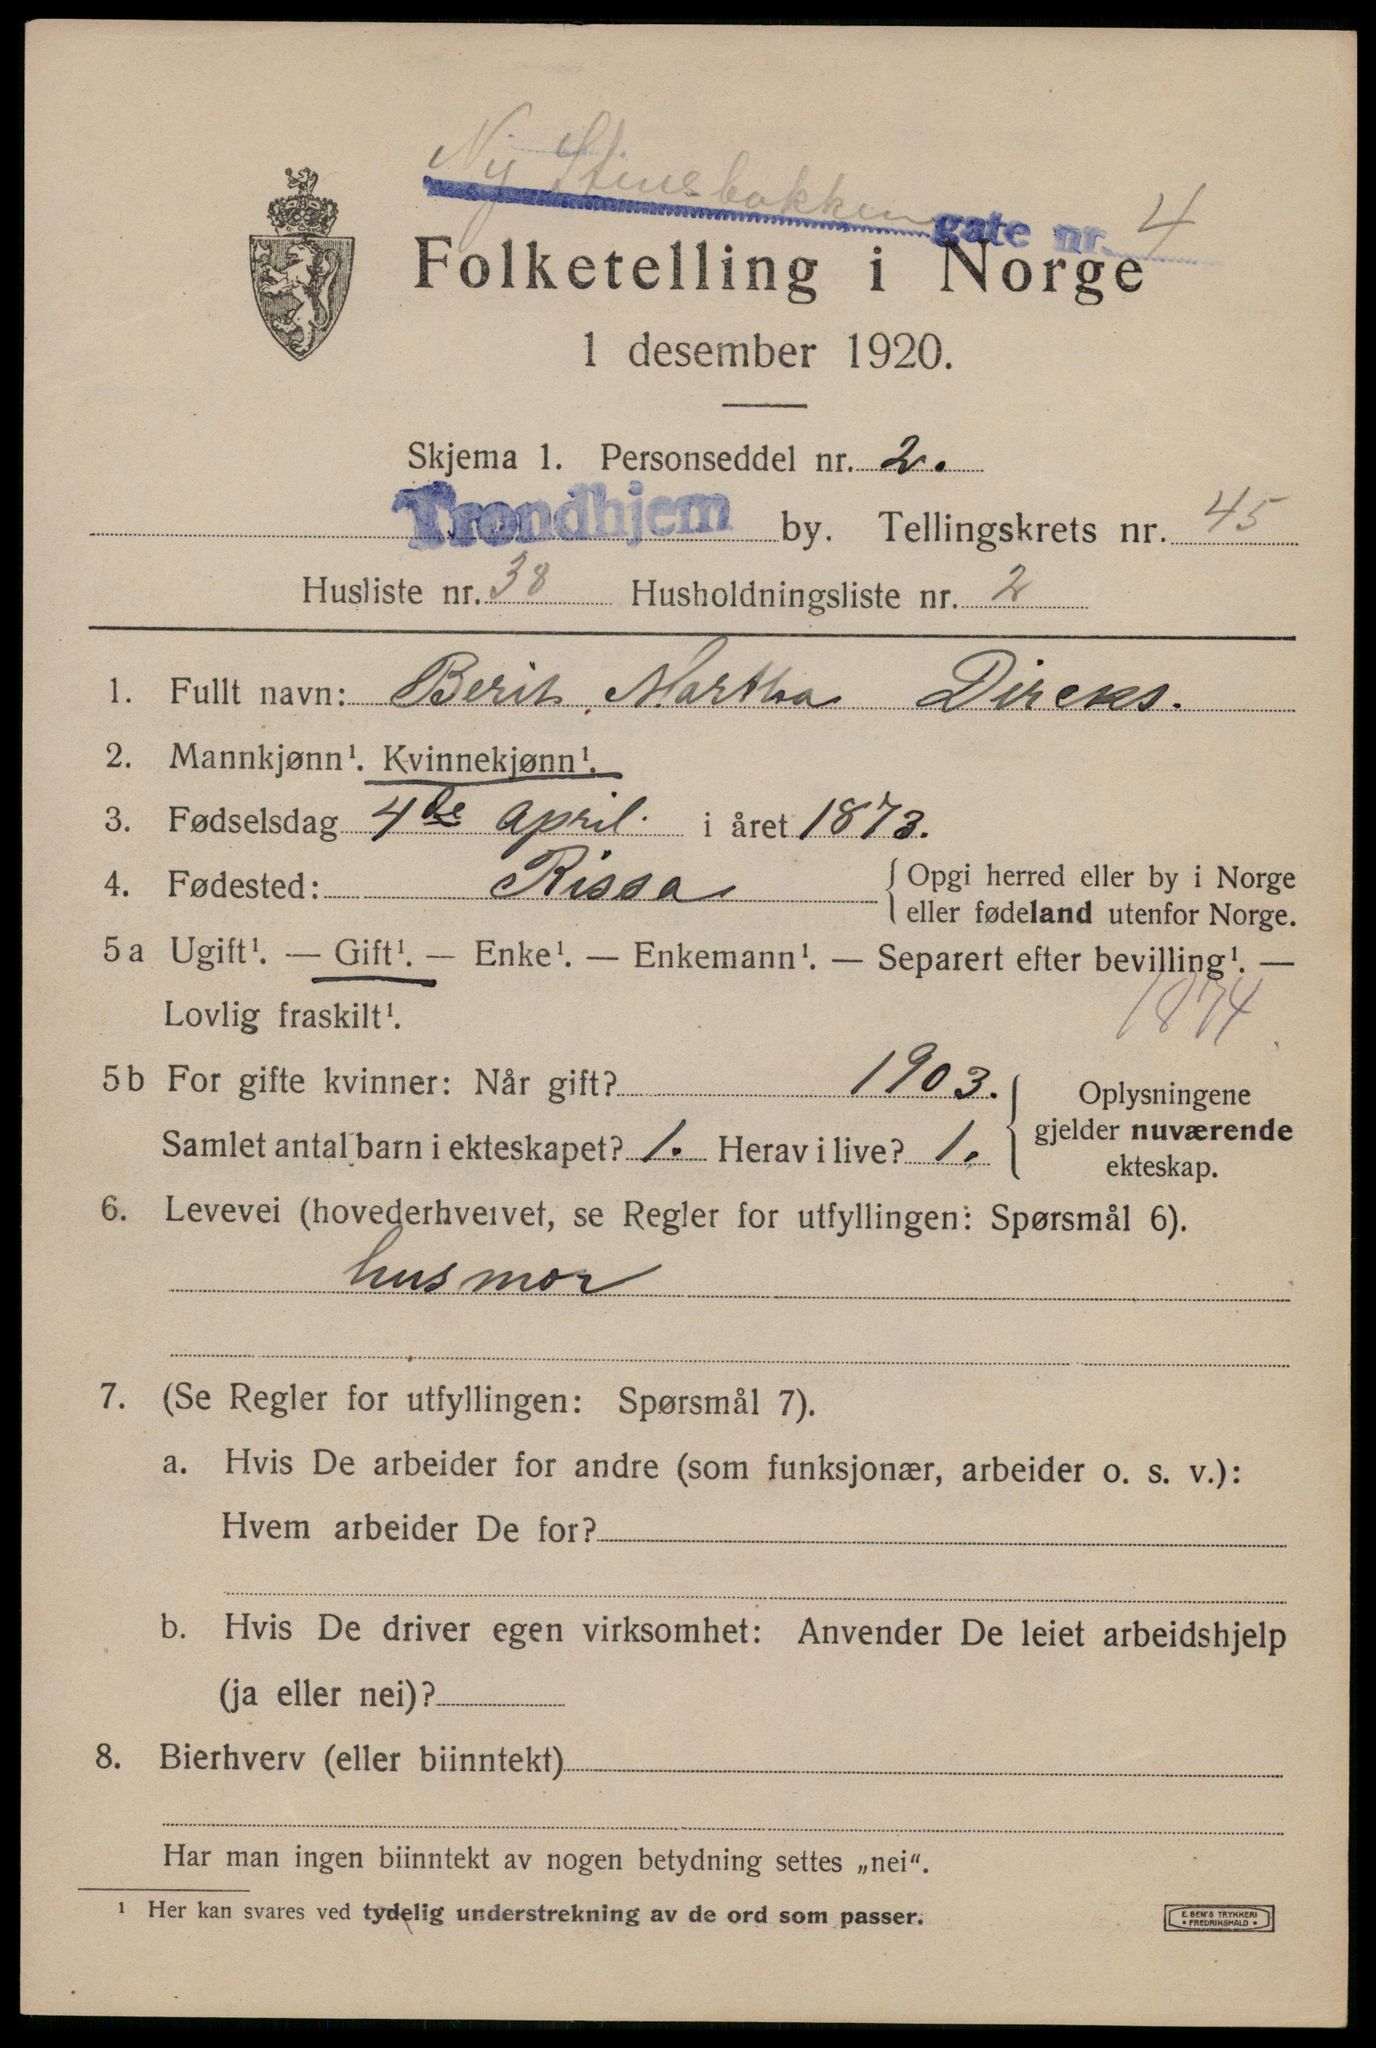 Ny Stinesbakken gate nr. 4
Folketelling i Norge
1 desember 1920.
Skjema 1. Personseddel nr. 2.
Trondhjem by. Tellingskrets nr. 45
Husliste nr. 38 Husholdningsliste nr. 2
1. Fullt navn: Berit Martha Dircks.
2. Mannkjønn¹. Kvinnekjønn¹.
3. Fødselsdag 4de april. i året 1873.
4. Fødested: Rissa { Opgi herred eller by i Norge
eller fødeland utenfor Norge.
5a Ugift¹. — Gift¹. — Enke¹. — Enkemann¹. — Separert efter bevilling¹. —
Lovlig fraskilt¹. 1874
5b For gifte kvinner: Når gift? 1903. { Oplysningene
gjelder nuværende
ekteskap.
Samlet antal barn i ekteskapet? 1. Herav i live? 1.
6. Levevei (hovederhvervet, se Regler for utfyllingen: Spørsmål 6).
husmor
7. (Se Regler for utfyllingen: Spørsmål 7).
a. Hvis De arbeider for andre (som funksjonær, arbeider o. s. v.):
Hvem arbeider De for?
b. Hvis De driver egen virksomhet: Anvender De leiet arbeidshjelp
(ja eller nei)?
8. Bierhverv (eller biinntekt)
Har man ingen biinntekt av nogen betydning settes „nei“.
¹ Her kan svares ved tydelig understrekning av de ord som passer.
E. SEM'S TRYKKERI
• FREDRIKSHALD •